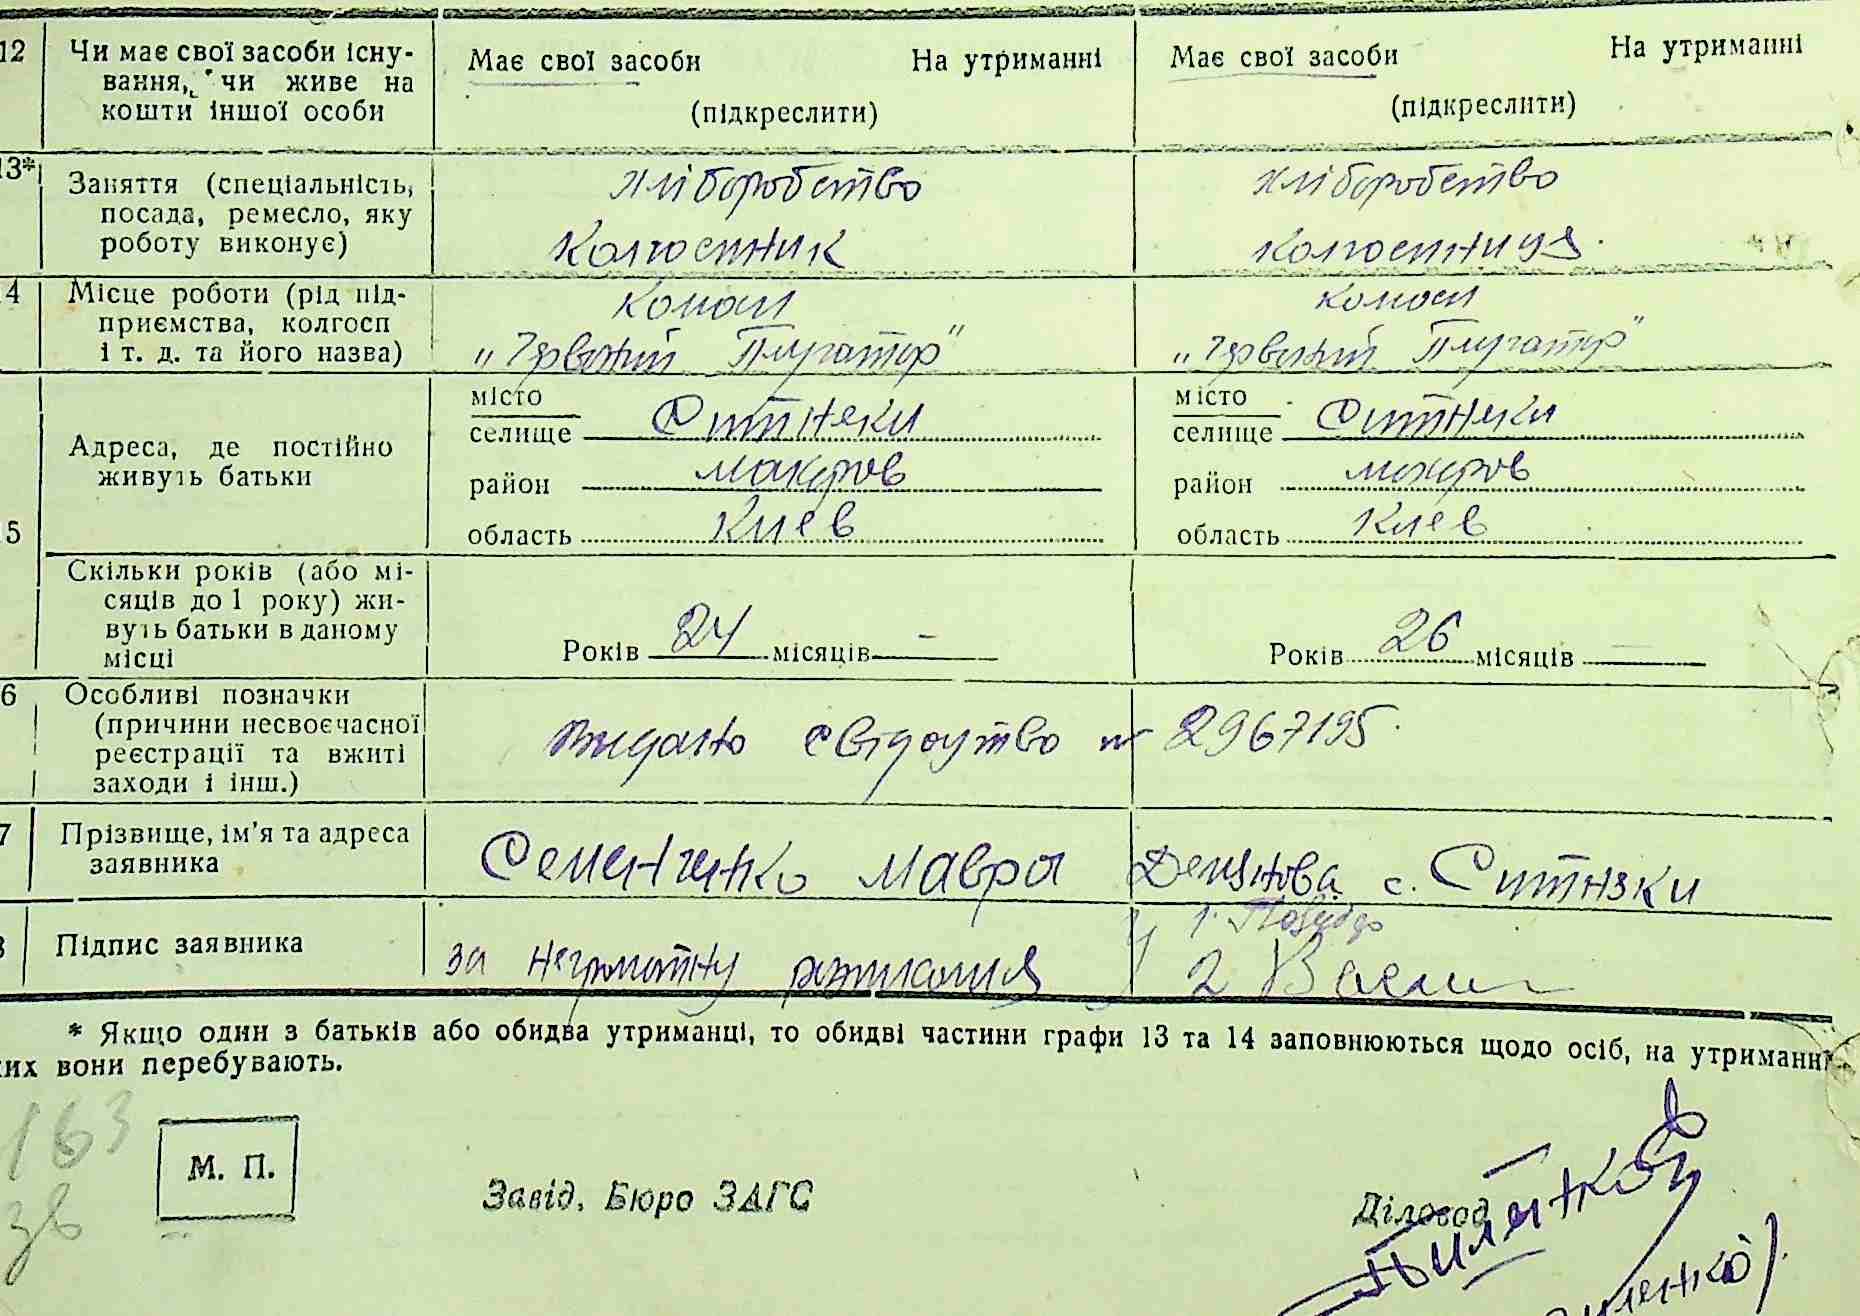 12 Чи має свої засоби існу-
вання, чи живе на
кошти іншої особи
Має свої засоби На утриманні
(підкреслити)
Має свої засоби На утриманні
(підкреслити)
13* Заняття (спеціальність,
посада, ремесло, яку
роботу виконує)
хліборобство
колгоспник
хліборобство
колгоспниця
4 Місце роботи (рід під-
приємства, колгосп
і т. д. та його назва)
колгосп
„Червоний Плугатор"
колгосп
„Червоний Плугатор"
5 Адреса, де постійно
живуть батьки
місто
селище Ситняки
район Макаров
область Киев
місто
селище Ситняки
район Макаров
область Киев
Скільки років (або мі-
сяців до 1 року) жи-
вуть батьки в даному
місці
Років 24 місяців —
Років 26 місяців —
6 Особливі позначки
(причини несвоєчасної
реєстрації та вжиті
заходи і інш.)
Видано свідоцтво № 2967195.
7 Прізвище, ім'я та адреса
заявника
Семенченко Мавра Демянова с. Ситняки
8 Підпис заявника
за неграмотну розписалися
1.
2
* Якщо один з батьків або обидва утриманці, то обидві частини графи 13 та 14 заповнюються щодо осіб, на утриманні
ких вони перебувають.
163
зв
М. П.
Завід. Бюро ЗАГС
Діловод